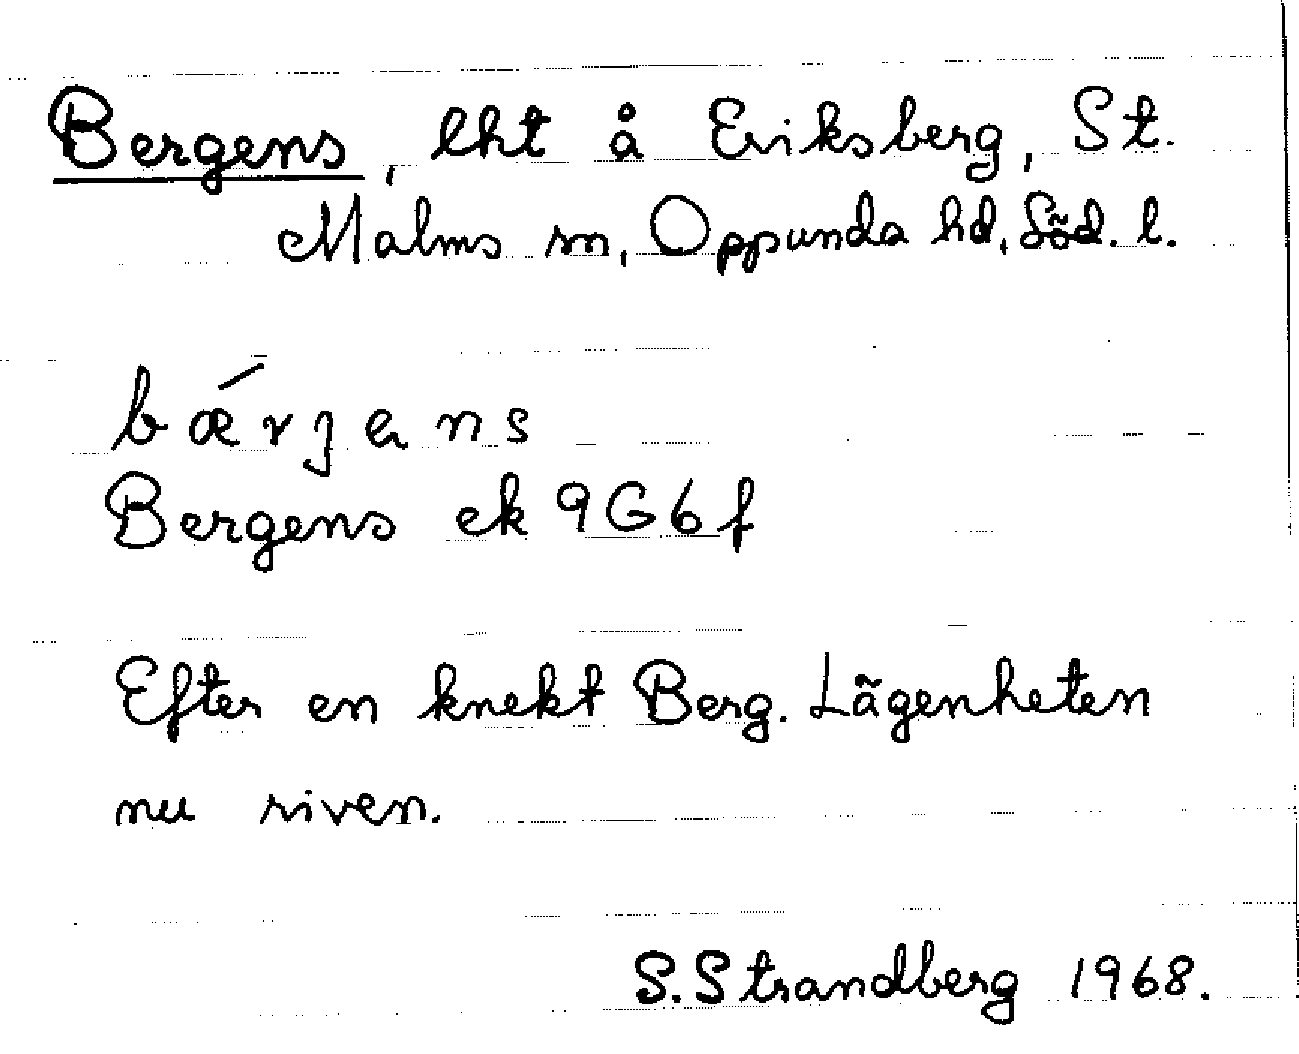 Bergens, lht å Eriksberg, St.
Malms sn, Oppunda hd, Söd. l.
bæ´rjans
Bergens ek 9G6f
Efter en knekt Berg. Lägenheten
nu riven.
S. Strandberg 1968.